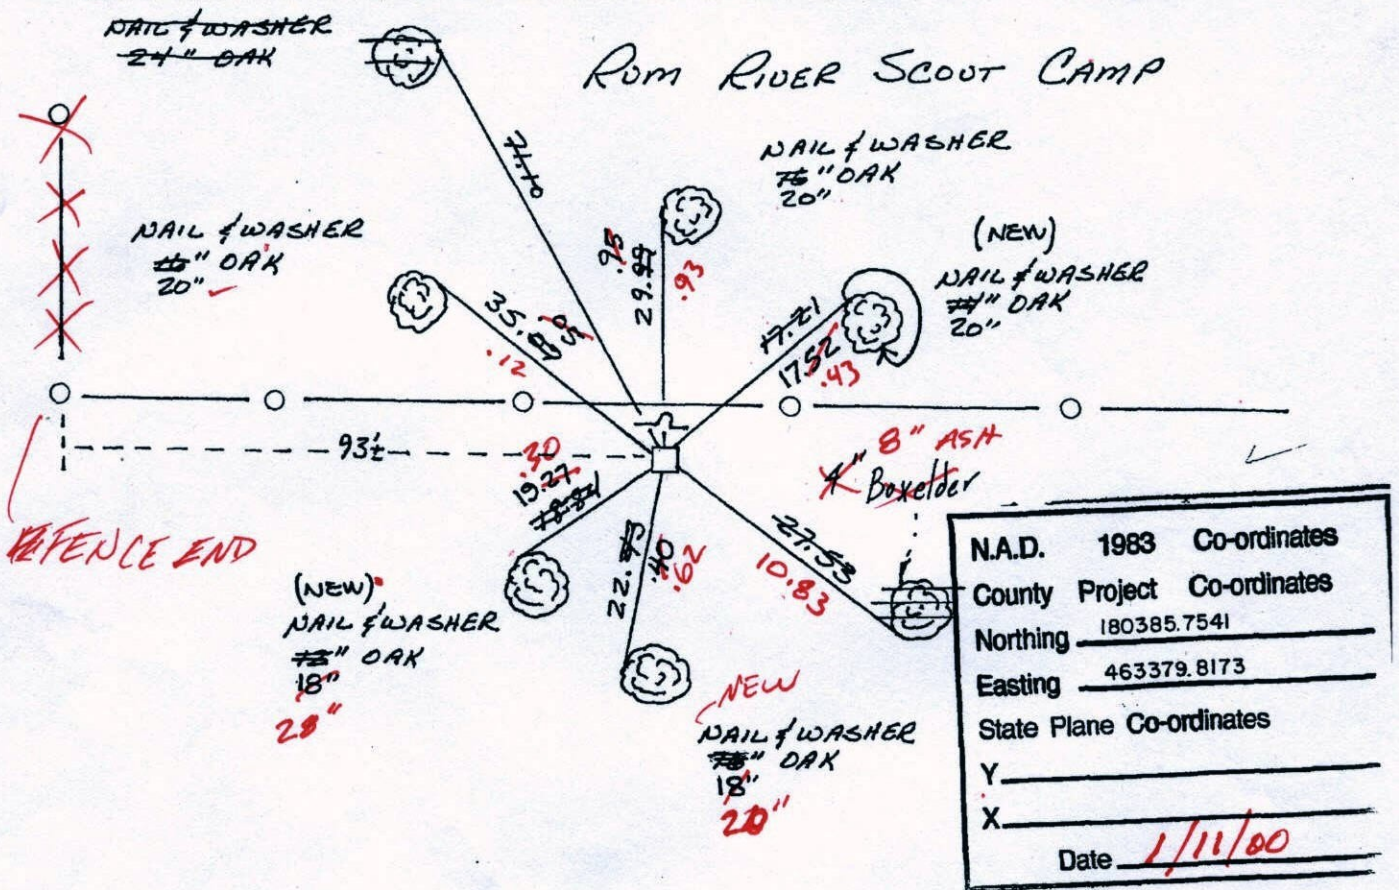 NAIL & WASHER
24" OAK
RUM RIVER SCOUT CAMP
71.10
NAIL & WASHER
" OAK
20"
NAIL & WASHER
" OAK
20"
(NEW)
NAIL & WASHER
" OAK
20"
.95
29.
.93
35.
.05
.12
17.21
17.52
.43
93'±
8" ASH
4" Boxelder
.30
19.27
22.
.40
.62
27.53
10.83
FENCE END
(NEW)
NAIL & WASHER
" OAK
18"
28"
NEW
NAIL & WASHER
" OAK
18"
20"
N.A.D. 1983 Co-ordinates
County Project Co-ordinates
Northing 180385.7541
Easting 463379.8173
State Plane Co-ordinates
Y
X
Date 1/11/00